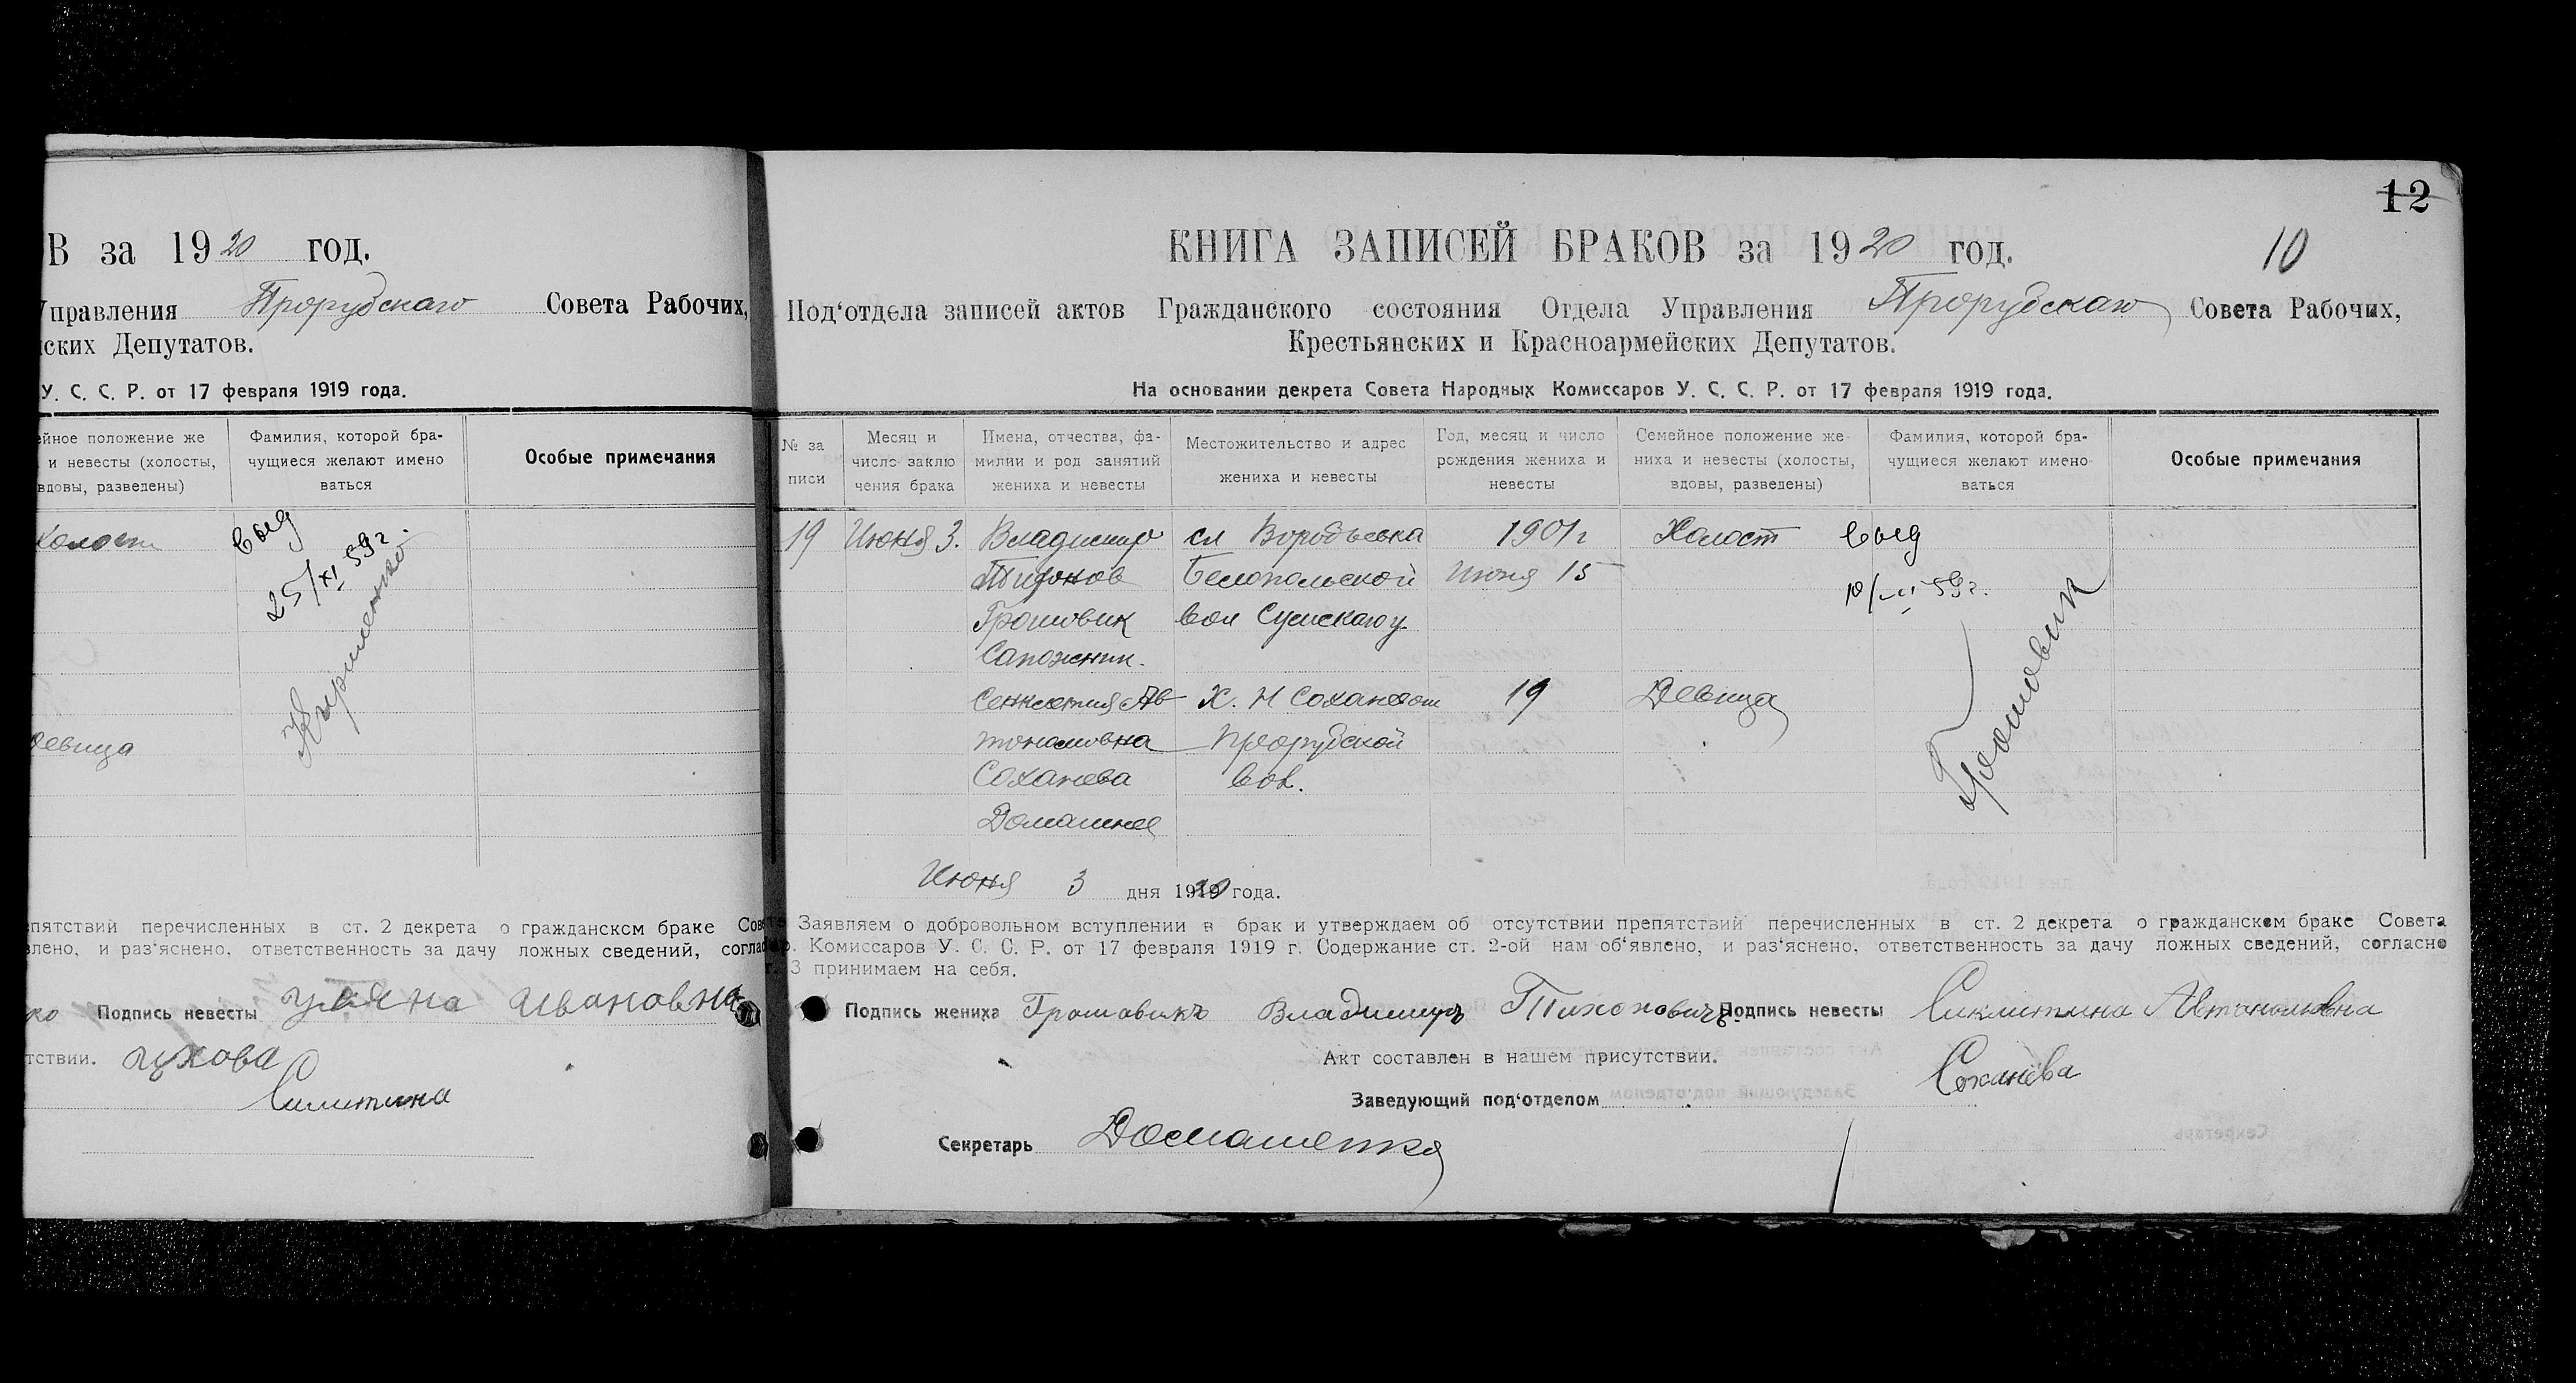 В за 1920 год.
Управления Прорубскаго Совета Рабочих,
ских Депутатов.
У. С. С. Р. от 17 февраля 1919 года.
ейное положение же
и невесты (холосты,
вдовы, разведены)
Фамилия, которой бра-
чущиеся желают имено
ваться
Особые примечания
Холост
выд
25/XI 59г.
девица
пятствий перечисленных в ст. 2 декрета о гражданском браке Сове
влено, и раз'яснено, ответственность за дачу ложных сведений, соглас
ко Подпись невесты Уляна Ивановна
тствии.
12
10
КНИГА ЗАПИСЕЙ БРАКОВ за 1920 год.
Под'отдела записей актов Гражданского состояния Отдела Управления Прорубскаго Совета Рабочих,
Крестьянских и Красноармейских Депутатов.
На основании декрета Совета Народных Комиссаров У. С. С. Р. от 17 февраля 1919 года.
№ за
писи
Месяц и
число заклю
чения брака
Имена, отчества, фа-
милии и род занятий
жениха и невесты
Местожительство и адрес
жениха и невесты
Год, месяц и число
рождения жениха и
невесты
Семейное положение же-
ниха и невесты (холосты,
вдовы, разведены)
Фамилия, которой бра-
чущиеся желают имено-
ваться
Особые примечания
19 Июня 3. Владимир сл Воробьевка 1901г Холост выд
Тихонов Белопольской Июня 15
Грошовик вол Сумскаго у
Сапожник.
Ав- Х. Н 19 Девица
тономовна Прорубской
Соханева вол.
Домашнее
Грошовик
Июня 3 дня 1920 года.
Заявляем о добровольном вступлении в брак и утверждаем об отсутствии препятствий перечисленных в ст. 2 декрета о гражданском браке Совета
р. Комиссаров У. С. С. Р. от 17 февраля 1919 г. Содержание ст. 2-ой нам об'явлено, и раз'яснено, ответственность за дачу ложных сведений, согласно
3 принимаем на себя.
Подпись жениха Грошовикъ Владимиръ Тихоновичъ Подпись невесты Автономовна
Соханева
Акт составлен в нашем присутствии.
Заведующий под'отделом
Секретарь Домашенко